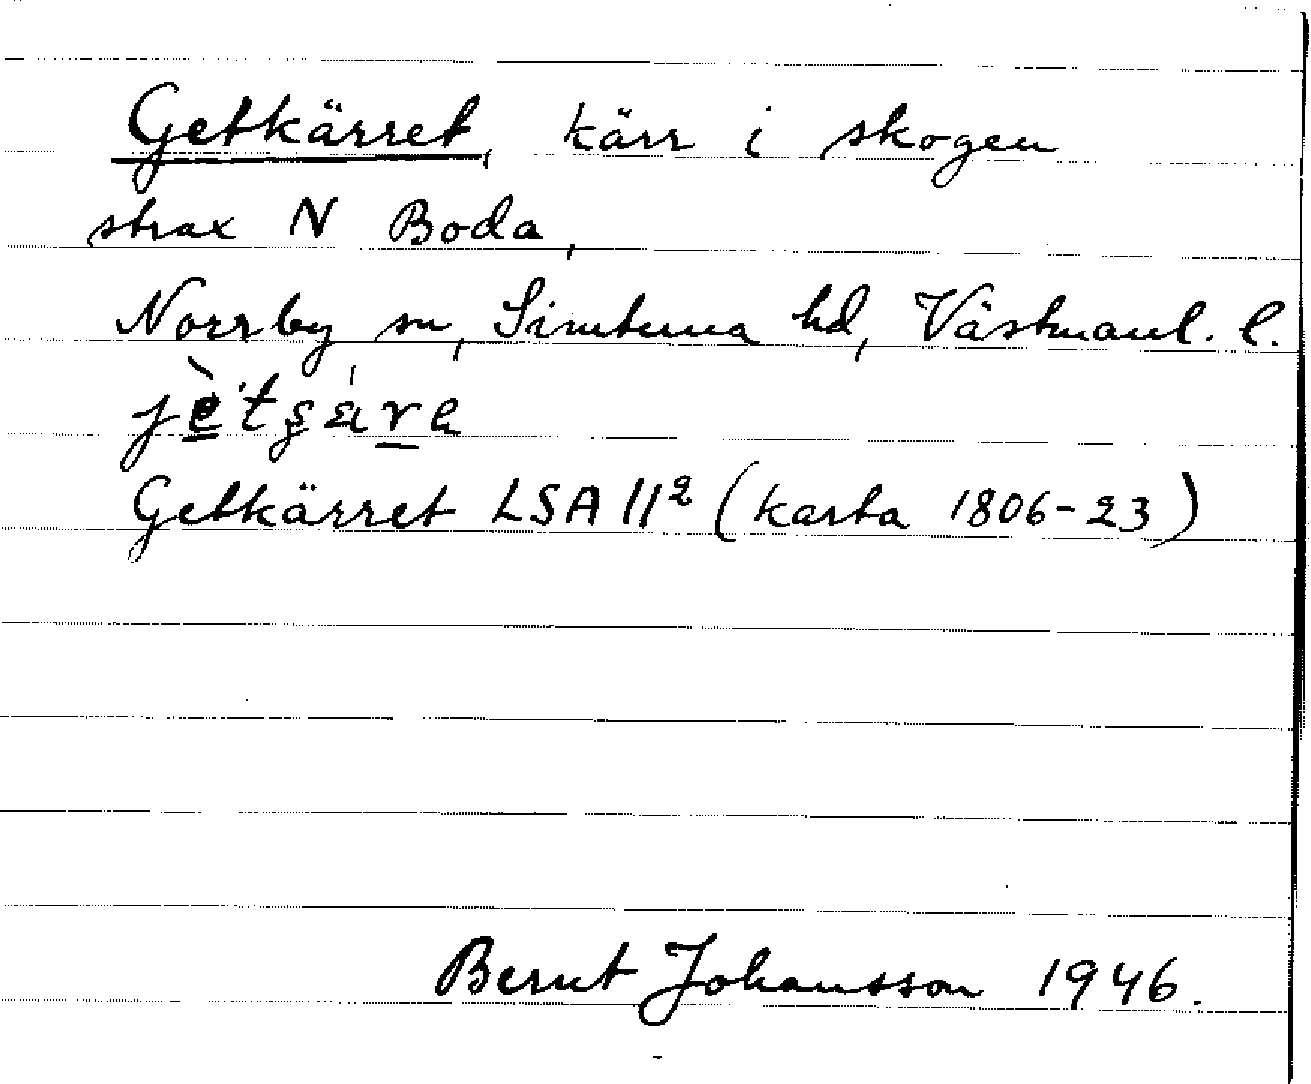 Getkärret, kärr i skogen
strax N Boda,
Norrby sn, Simtuna hd, Västmanl. l.
Getkärret LSA 11² (karta 1806-23)
Bernt Johansson 1946.